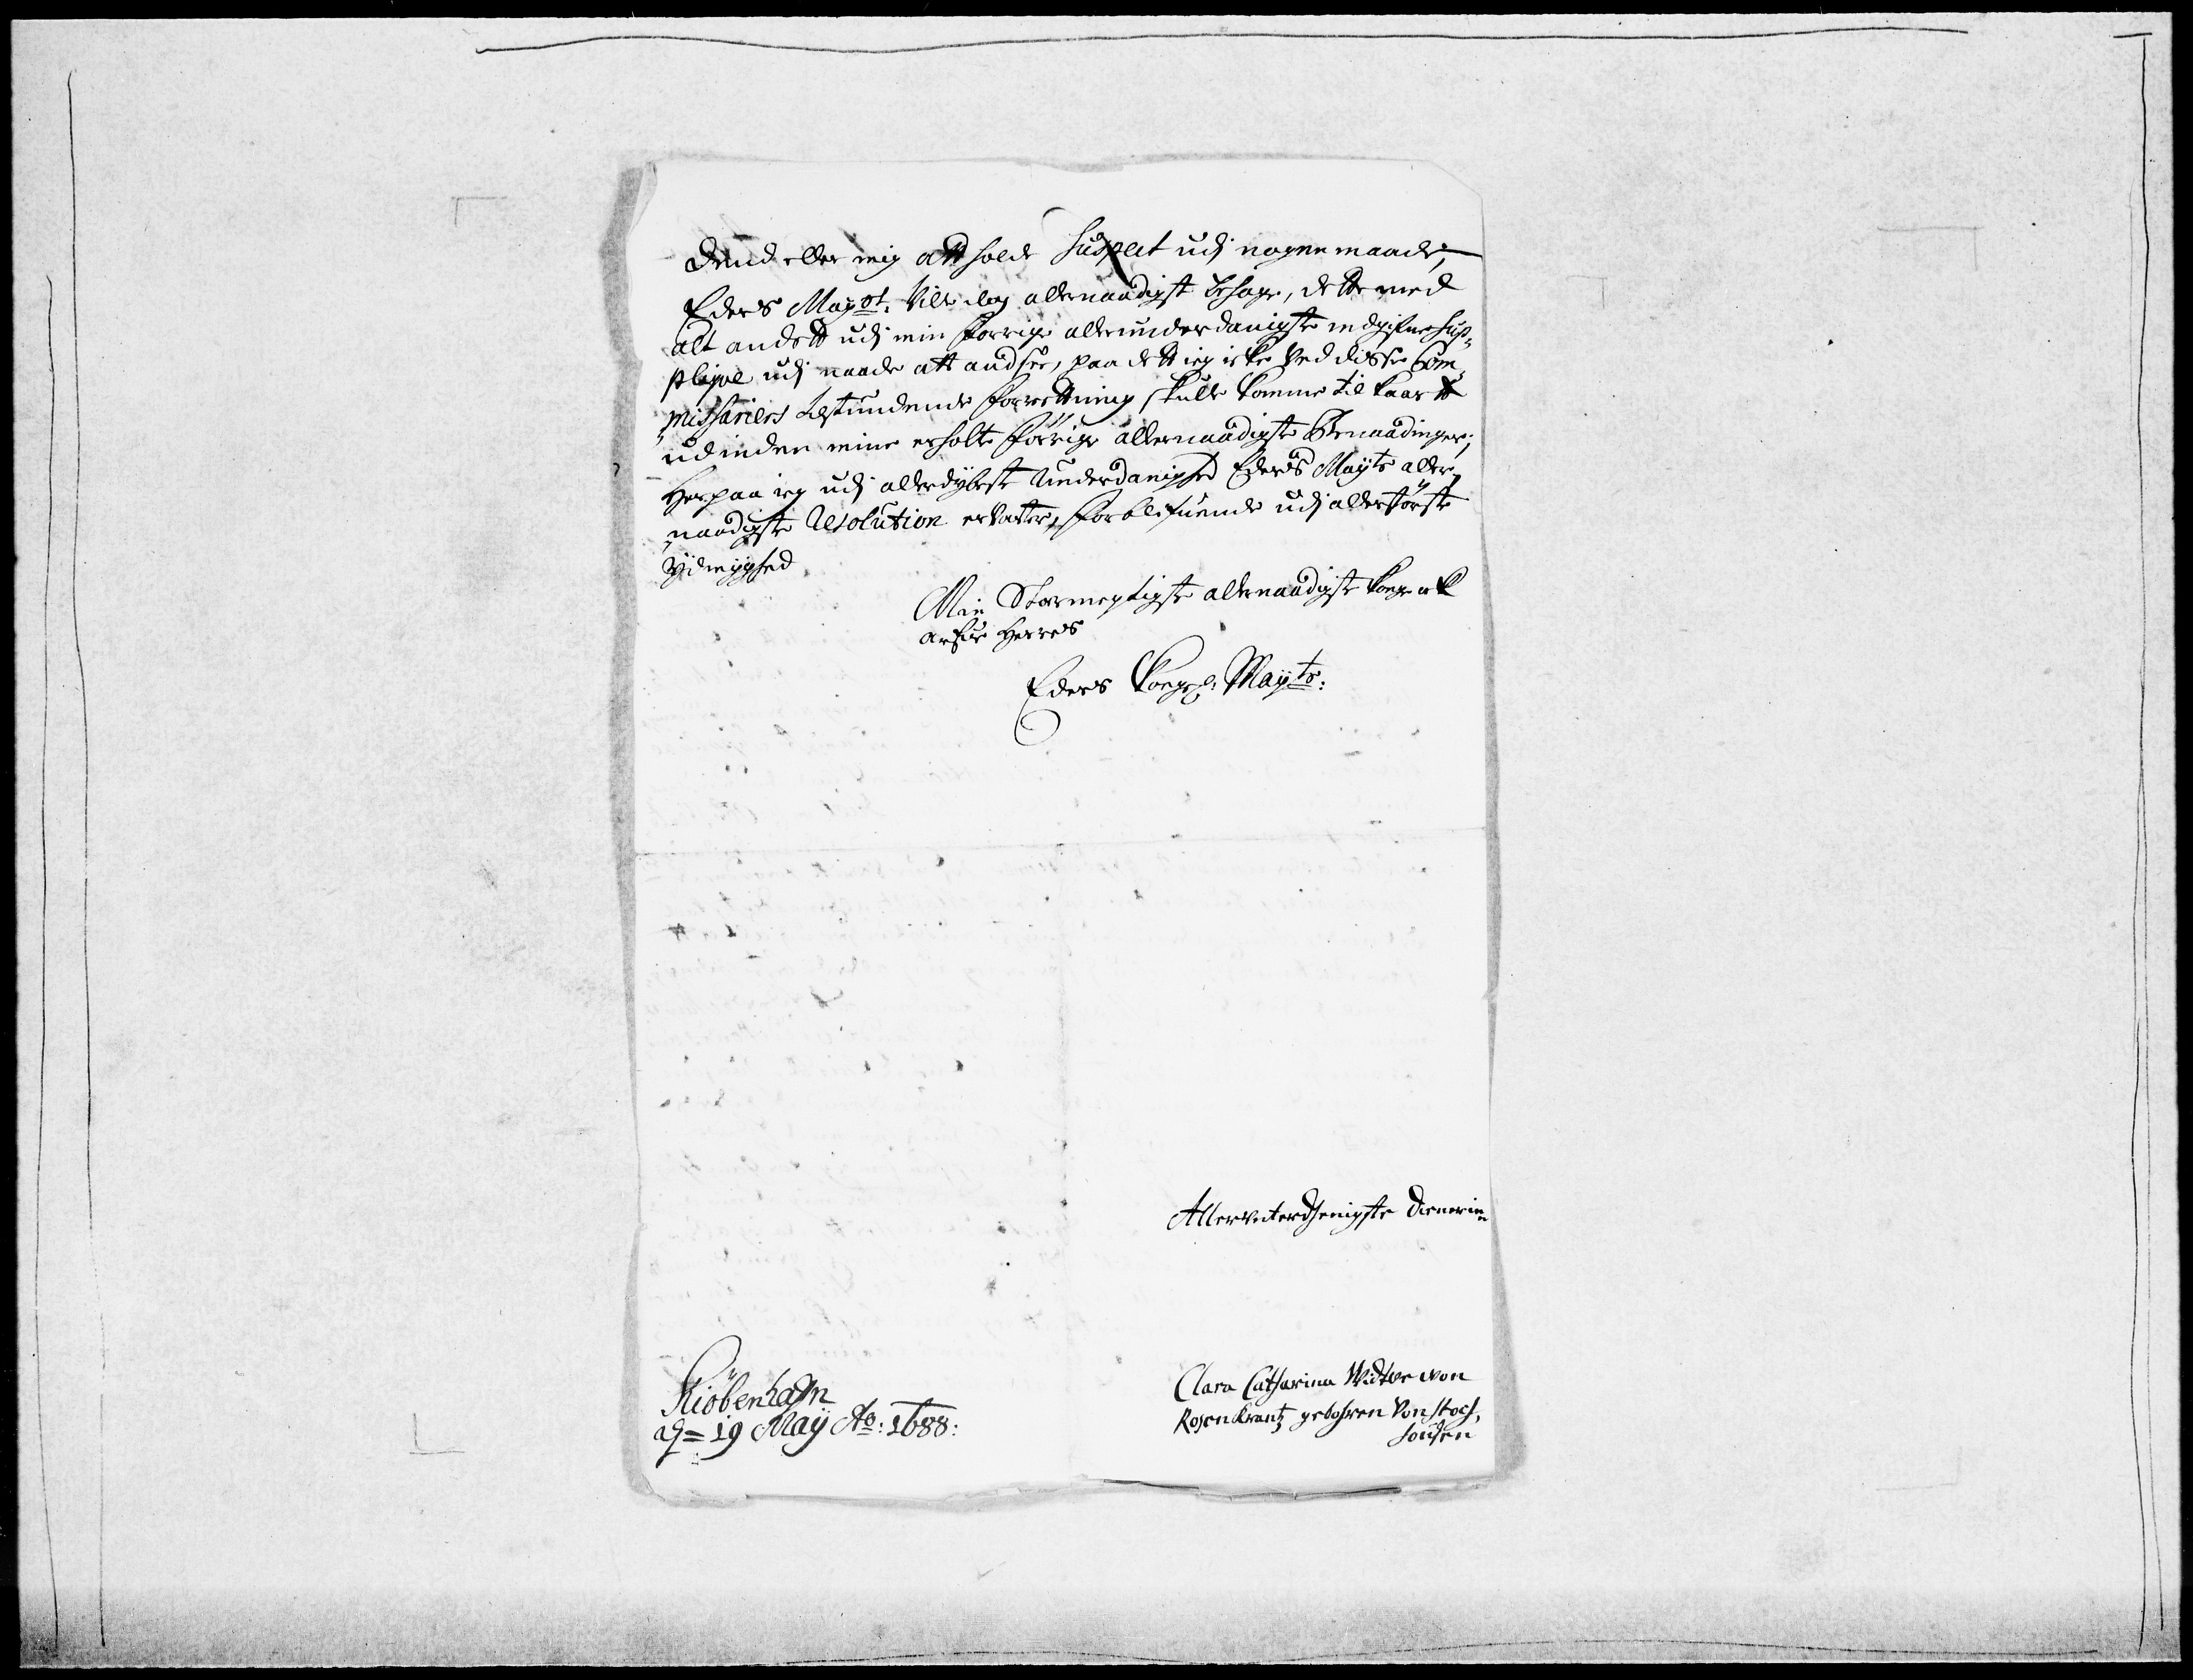 dend eller mig att holde Suspect udj nogen maade,
Eders Mayᵗ. Ville dog allernaadigst behage, dette med
alt andett udj min forrige allerunderdanigste indgifne sup¸
pliqve udj naade att andsee, paa dett ieg icke ved disse Com¸
missariers tilstundende forrettning skulle komme til kaartt
udinden mine erholte förrige allernaadigste Benaadinger;
Herpaa ieg udj allerdybeste Underdanighed Eders Mayts aller¸
naadigste Resolution ervarter, forblifuende udj allerstörste
Ydmyghed
Min Stormegtigste allernaadigste Konge och
arfue Herres
Eders Kongl: Mayts:
Allervnterthenigste Dienerinn
Kiöbenhafn
d= 19 Maÿ Ao: 1688:
Clara Catharina Widtwe von
Rosenkrantz gebohren Von Stoch¸
housen